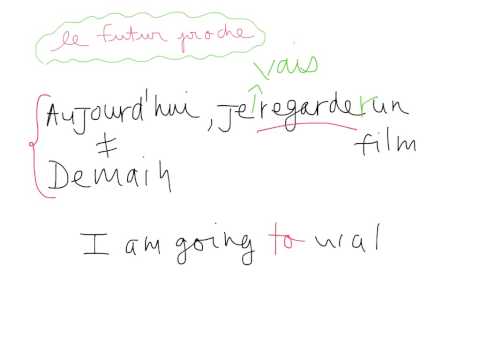 le futur proche
vais
Aujourd'hui, je regarder un
≠ film
Demain
I am going to